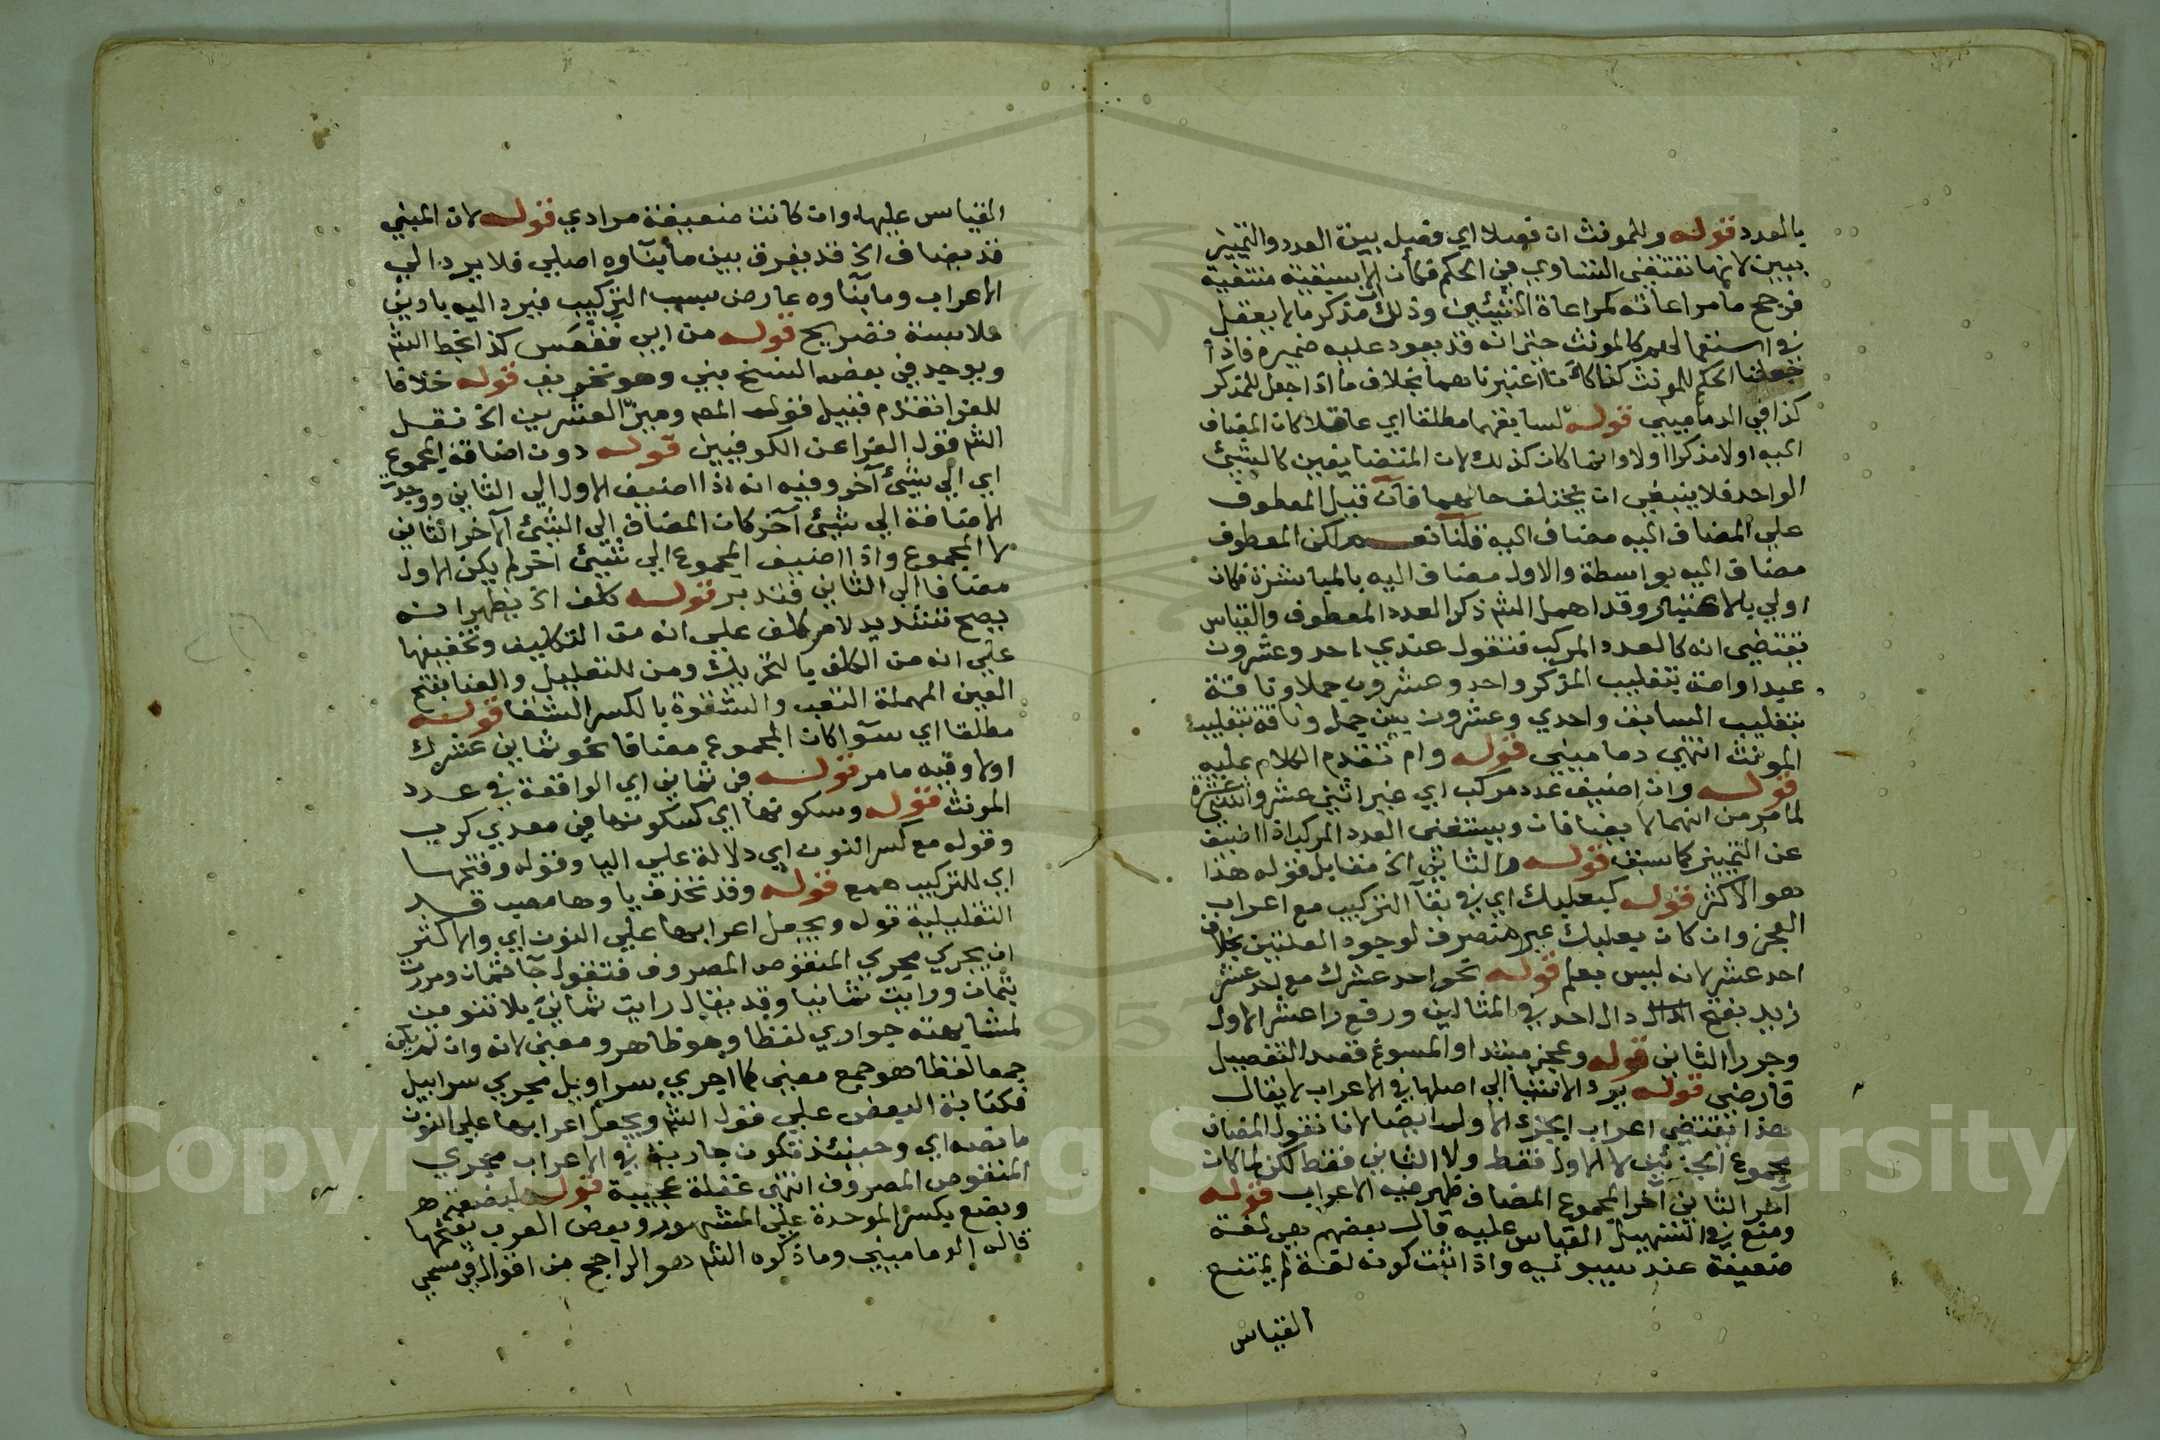 بالعدد قوله وللمونث ان فصلا اي فصل بين العدد والتمييز
ببين لانها تقتضي التساوي في الحكم فكأن الاسبقية منتفية
فرجح ما مراعاته كمراعاة الشيئين وذلك مذكر ما لا يعقل
في استعمالهم كالمونث حتى انه قد يعود عليه ضميره فاذا
جعلنا الحكم للمونث كنا كأننا اعتبرناهما بخلاف ما اذا جعل للمذكر
كذا في الدماميني قوله لسابقهما مطلقا اي عاقلا كان المضاف
اليه اولا مذكرا اولا وانما كان كذلك لان المتضايفين كالشيئ
الواحد فلا ينبغي ان يختلف حالهما فان قيل المعطوف
علي المضاف اليه مضاف اليه قلنا نعم لكن المعطوف
مضاف اليه بواسطة والاول مضاف اليه بالمباشرة فكان
اولي بالاعتبار وقد اهمل الشم ذكر العدد المعطوف والقياس
يقتضي انه كالعدد المركب فتقول عندي احد وعشرون
عبدا وامة بتغليب المذكر واحد وعشرون جملا وناقة
بتغليب السابق واحدي وعشرون بين جمل وناقة بتغليب
المونث انتهي دماميني قوله وام تقدم الكلام عليه
قوله وان اضيف عدد مركب اي غير اثني عشر واثنتي عشرة
لما مر من انهما لا يضافان ويستغنى العدد المركب اذا اضيف
عن التمييز كما سبق قوله والثاني الخ مقابل قوله هذا
هو الاكثر قوله كبعلبك اي في بقآ التركيب مع اعراب
العجز وان كان بعلبك غير متصرف لوجود العلتين بخلاف
احد عشر لانه ليس بعلم قوله نحو احد عشرك مع احد عشر
زيد بفتح دال احد في المثالين ورفع را عشر الاول
وجر را الثاني قوله وعجز مبتدا والمسوغ قصد التفصيل
قارضي قوله يرد الاشيا الي اصلها في الاعراب لا يقال
هذا يقتضي اعراب الجزء الاول ايضا لانا نقول المضاف
مجموع الجزئين لا الاول فقط ولا الثاني فقط لكن لما كان
آخر الثاني آخر المجموع المضاف ظهر فيه الاعراب قوله
ومنع في التسهيل القياس عليه قال بعضهم هي لغة
ضعيفة عند سيبويه واذا ثبت كونه لغة لم يمتنع
القياس
القياس عليها وان كانت ضعيفة مرادي قوله لان المبني
قد يضاف الخ قد يفرق بين ما بنآوه اصلي فلا يرد الي
الاعراب وما بنآوه عارض بسبب التركيب فيرد اليه بادني
ملابسة تصريح قوله من ابي فقعس كذا بخط الشم
ويوجد في بعض النسخ بني وهو تحريف قوله خلافا
للفرا تقدم قبيل قوله المص وميز العشرين الخ نقل
الشم قول الفرا عن الكوفيين قوله دون اضافة المجموع
اي الي شيئ آخر وفيه انه اذا اضيف الاول الي الثاني ووجدت
الاضافة الي شيئ آخر كان المضاف الي الشيئ الآخر الثاني
لا المجموع واذا اضيف المجموع الي شيئ آخر لم يكن الاول
مضافا الي الثاني فتدبر قوله كلف الخ يظهر انه
يصح تشديد لام كلف علي انه من التكليف وتخفيفها
علي انه من الكلف بالتحريك ومن للتعليل والعنا بفتح
العين المهملة التعب والشقوة بالكسر الشقا قوله
مطلقا اي سوآ كان المجموع مضافا نحو ثماني عشرك
اولا وفيه ما مر قوله في ثماني اي الواقعة في عدد
المونث قوله وسكونها اي كسكونها في معدي كرب
وقوله مع كسر النون اي دلالة علي اليا وقوله وفتحها
اي للتركيب همع قوله وقد تحذف ياوها معيب قد
التقليلية قوله ويجعل اعرابها علي النون اي والاكثر
ان يجري مجري المنقوص المصروف فتقول جآ ثمان ومررت
بثمان ورايت ثمانيا وقد يقال رايت ثماني بلا تنوين
لمشابهته جواري لفظا وهو ظاهر ومعني لانه وان لم يكن
جمعا لفظا هو جمع معني كما اجري سراويل مجري سرابيل
فكتابة البعض علي قول الشم ويجعل اعرابها علي النون
ما نصه اي وحينئذ تكون جارية في الاعراب مجري
المنقوص المصروف انتهى غفلة عجيبة قوله لبضعة
وبضع بكسر الموحدة علي المشهور وبعض العرب يفتحها
قاله الدماميني وما ذكره الشم هو الراجح من اقوال في مسمي